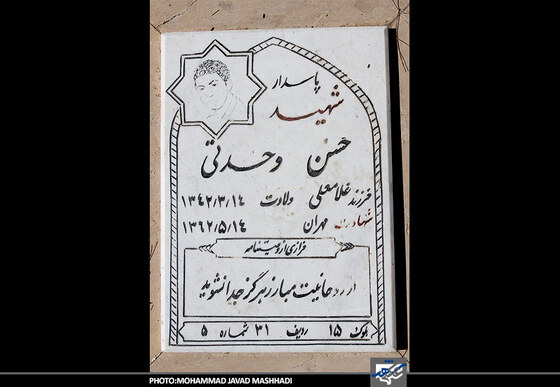 پاسدار
شهید
حسن وحدتی
فرزند غلامعلی ولادت ۱۳۴۲/۳/۱۴
شهادت مهران ۱۳۶۲/۵/۱۴
فرازی از وصیتنامه
از روحانیت مبارز هرگز جدا نشوید
بلوک ۱۵ ردیف ۳۱ شماره ۵
PHOTO:MOHAMMAD JAVAD MASHHADI